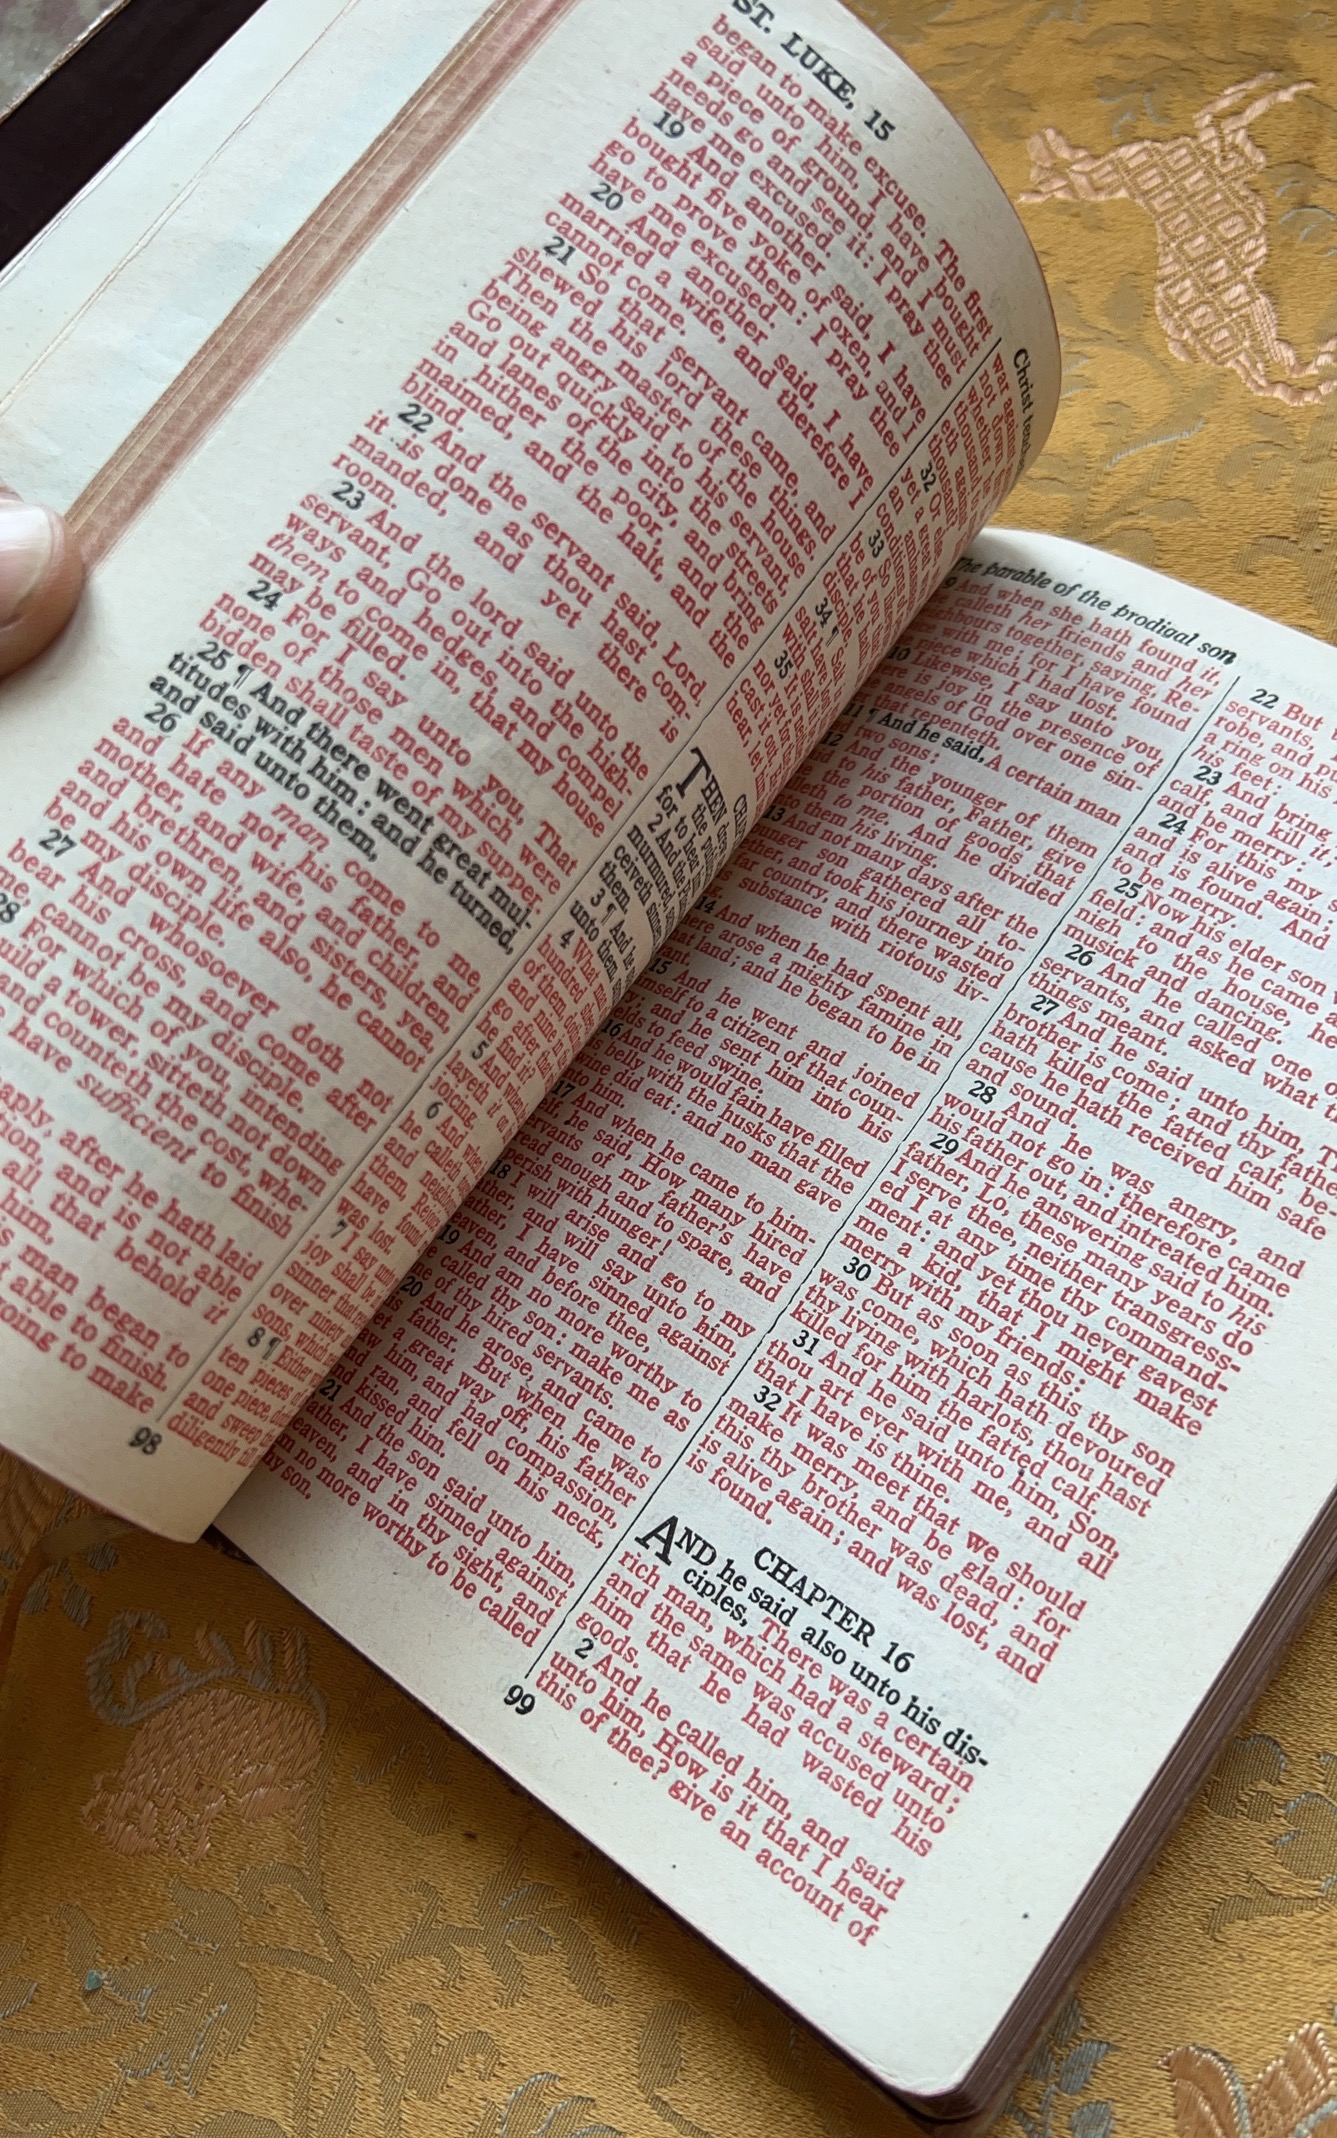 ST. LUKE, 15
began to make excuse. The first
said unto him, I have bought
a piece of ground, and I must
needs go and see it: I pray thee
have me excused.
19 And another said, I have
bought five yoke of oxen, and I
go to prove them: I pray thee
have me excused.
20 And another said, I have
married a wife, and therefore I
cannot come.
21 So that servant came, and
shewed his lord these things.
Then the master of the house
being angry said to his servant,
Go out quickly into the streets
and lanes of the city, and bring
in hither the poor, and the
maimed, and the halt, and the
blind.
22 And the servant said, Lord,
it is done as thou hast com-
manded, and yet there is
room.
23 And the lord said unto the
servant, Go out into the high-
ways and hedges, and compel
them to come in, that my house
may be filled.
24 For I say unto you, That
none of those men which were
bidden shall taste of my supper.
25 ¶ And there went great mul-
titudes with him: and he turned,
and said unto them,
26 If any man come to me
and hate not his father, and
mother, and wife, and children,
and brethren, and sisters, yea,
and his own life also, he cannot
be my disciple.
27 And whosoever doth not
bear his cross, and come after
me, cannot be my disciple.
28 For which of you, intending
build a tower, sitteth not down
and counteth the cost, whe-
have sufficient to finish
haply, after he hath laid
and is not able
all that behold it
him,
man began to
able to finish.
going to make
98
Christ
war against
not down
whether
thousand
eth against
thousand?
32 Or
yet a great
an
conditions
33 So
be of you
that he
disciple.
34 ¶ Salt
salt have
with shall
35 It is
nor yet
cast it out.
hear, let him
THEN
the
for to hear
2 And the
murmured,
ceiveth
them.
3 ¶ And he
unto them,
4 What
hundred
of them, doth
and nine
go after that
he find it?
5 And when
layeth it on
joicing.
6 And when
he calleth
and
them, Rejoice
have found
was lost.
7 I say unto
joy shall be
sinner that
over ninety
sons, which
8 ¶ Either
ten pieces
one piece,
and sweep
diligently
The parable of the prodigal son
9 And when she hath found it,
calleth her friends and her
neighbours together, saying, Re-
with me; for I have found
piece which I had lost.
10 Likewise, I say unto you,
there is joy in the presence of
angels of God over one sin-
that repenteth.
11 ¶ And he said, A certain man
two sons:
12 And the younger of them
to his father, Father, give
the portion of goods that
falleth to me. And he divided
unto them his living.
13 And not many days after the
younger son gathered all to-
gether, and took his journey into
far country, and there wasted
substance with riotous liv-
ing.
14 And when he had spent all,
there arose a mighty famine in
that land; and he began to be in
want.
15 And he went and joined
himself to a citizen of that coun-
try; and he sent him into his
fields to feed swine.
16 And he would fain have filled
belly with the husks that the
swine did eat: and no man gave
unto him.
17 And when he came to him-
self, he said, How many hired
servants of my father's have
bread enough and to spare, and
perish with hunger!
18 I will arise and go to my
father, and will say unto him,
Father, I have sinned against
heaven, and before thee,
19 And am no more worthy to
be called thy son: make me as
one of thy hired servants.
20 And he arose, and came to
his father. But when he was
yet a great way off, his father
saw him, and had compassion,
and ran, and fell on his neck,
and kissed him.
21 And the son said unto him,
Father, I have sinned against
heaven, and in thy sight, and
am no more worthy to be called
thy son.
22 But
servants,
robe, and
a ring on his
his feet:
23 And bring
calf, and kill it;
and be merry:
24 For this my
and is alive again;
and is found. And
to be merry.
25 Now his elder son
field: and as he came
nigh to the house, he
musick and dancing.
26 And he called one
servants, and asked what
things meant.
27 And he said unto him,
brother is come; and thy father
hath killed the fatted calf, be-
cause he hath received him safe
and sound.
28 And he was angry, and
would not go in: therefore came
his father out, and intreated him.
29 And he answering said to his
father, Lo, these many years do
I serve thee, neither transgress-
ed I at any time thy command-
ment: and yet thou never gavest
me a kid, that I might make
merry with my friends:
30 But as soon as this thy son
was come, which hath devoured
thy living with harlots, thou hast
killed for him the fatted calf.
31 And he said unto him, Son,
thou art ever with me, and all
that I have is thine.
32 It was meet that we should
make merry, and be glad: for
this thy brother was dead, and
is alive again; and was lost, and
is found.
CHAPTER 16
AND he said also unto his dis-
ciples, There was a certain
rich man, which had a steward;
and the same was accused unto
him that he had wasted his
goods.
2 And he called him, and said
unto him, How is it that I hear
this of thee? give an account of
99